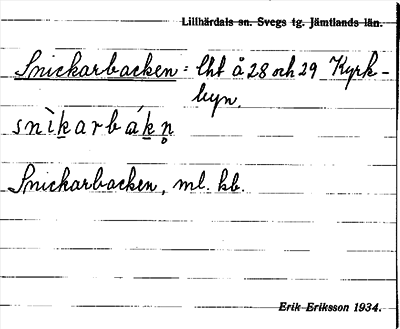 Lillhärdals sn. Svegs tg. Jämtlands län.
Snickarbacken = lht å 28 och 29 Kyrk-
byn.
snìkarbákn̥
Snickarbacken, ml. kb.
Erik Eriksson 1934.